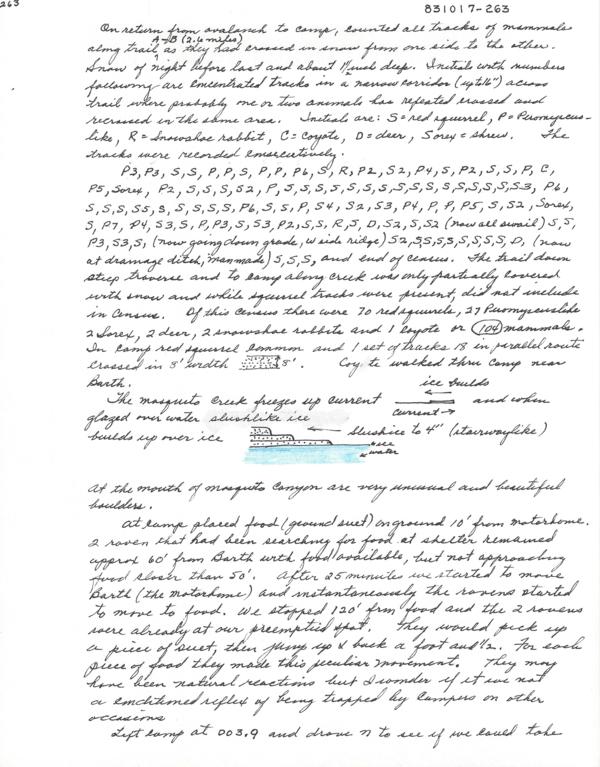 263
831017-263
On return from avalanch to camp, counted all tracks of mammals
A→B (2.6 miles)
along trail, as they had crossed in snow from one side to the other.
Snow of night before last and about 1 inch deep. Initials with numbers
following are concentrated tracks in a narrow corridor (up to 16") across
trail where probably one or two animals has repeated crossed and
recrossed in the same area. Initials are: S = red squirrel, P = Peromyscus-
like, R = Snowshoe rabbit, C = coyote, D = deer, Sorex = shrew. The
tracks were recorded consecutively.
P3, P3, S, S, P, P, S, P, P, P6, S, R, P2, S2, P4, S, P2, S, S, P, C,
P5, Sorex, P2, S, S, S, S2, P, S, S, S, S, S, S, S, S, S, S, S, S, S, S, S3, P6,
S, S, S, S5, 3, S, S, S, S, P6, S, S, P, S4, S2, S3, P4, P, P, P5, S, S2, Sorex,
S, P7, P4, S3, S, P, P3, S, S3, P2, S, S, R, S, D, S2, S, S2 (now all swail) S, S,
P3, S3, S, (now going down grade, W side ridge) S2, S, S, S, S, S, S, S, D, (now
at drainage ditch, manmade) S, S, S, and end of census. The trail down
steep traverse and to camp along creek was only partially covered
with snow and while squirrel tracks were present, did not include
in census. Of this census there were 70 red squirrels, 27 Peromyscuslike
2 Sorex, 2 deer, 2 snowshoe rabbits and 1 coyote or 104 mammals.
In camp red squirrel common and 1 set of tracks 18 in parallel route
crossed in 3' width 3'. Coyote walked thru camp near
Barth.
ice builds
The mosquito creek freezes up current and when
current →
glazed over water slushlike ice
builds up over ice slushice to 4" (stairwaylike)
ice
water
At the mouth of mosquito Canyon are very unusual and beautiful
boulders.
At camp placed food (ground suet) on ground 10' from motorhome.
2 raven that had been searching for food at shelter remained
approx 60' from Barth with food available, but not approaching
food closer than 50'. After 25 minutes we started to move
Barth (the motorhome) and instantaneously the ravens started
to move to food. We stopped 120' frm food and the 2 ravens
were already at our preemptied spot. They would pick up
a piece of suet, then jump up & back a foot and ½. For each
piece of food they made this peculiar movement. They may
have been natural reactions but I wonder if it was not
a conditioned reflex of being trapped by campers on other
occasions
Left camp at 003.9 and drove N to see if we could take